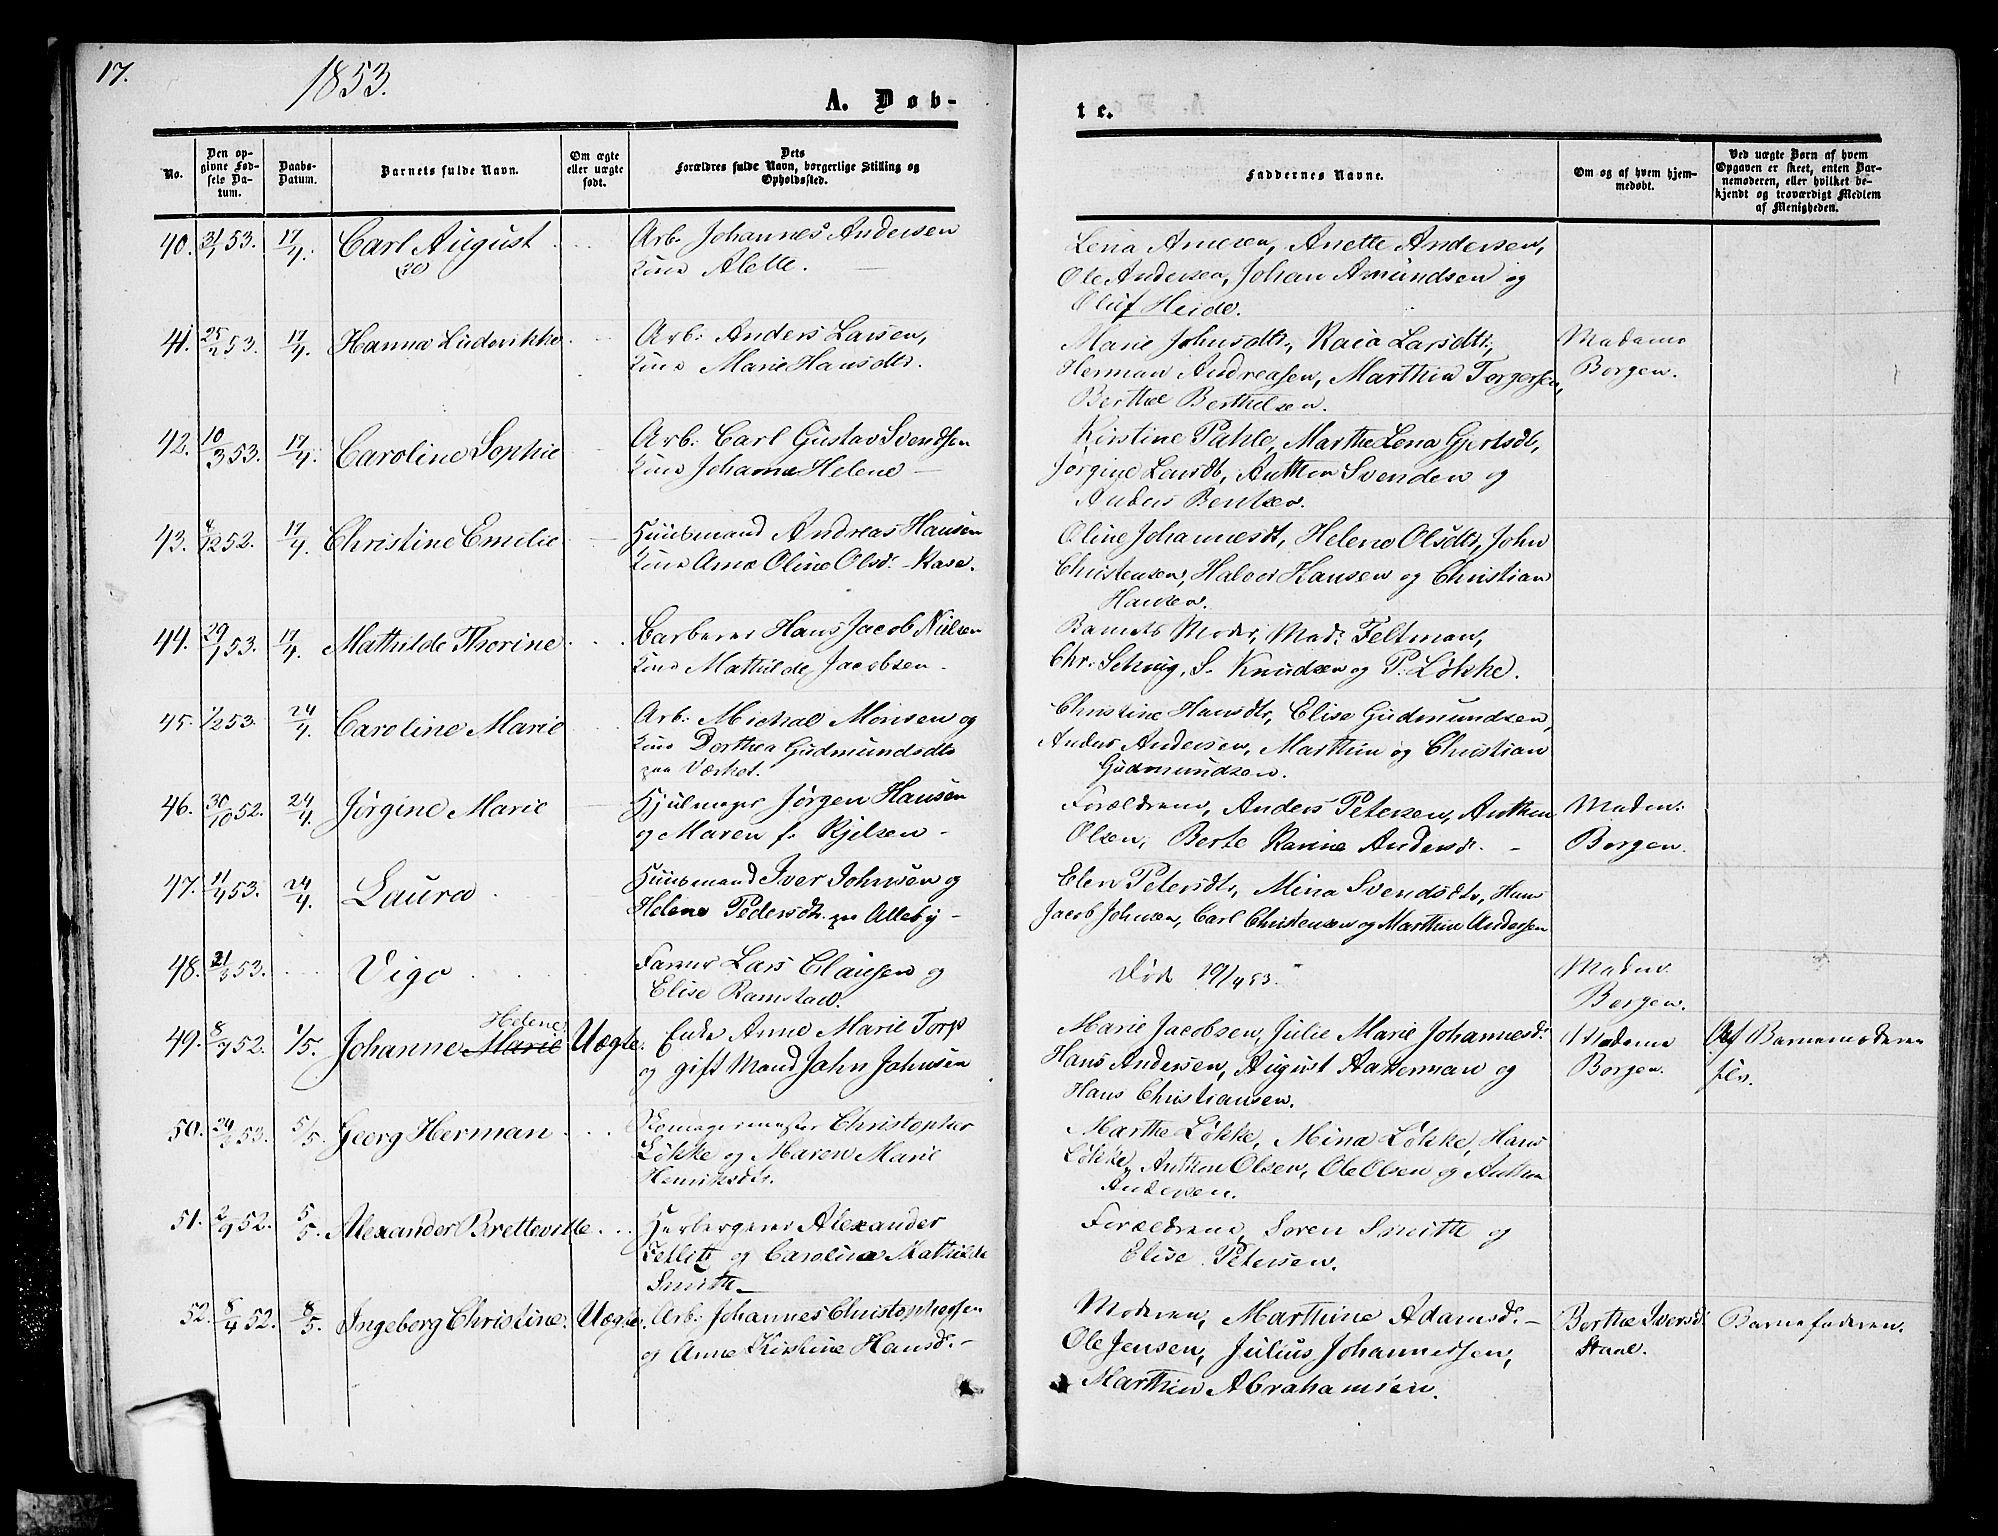 17.
1853.
A. Døb-
te.
No.
Den op-
givne Fød-
sels Da-
tum.
Daabs-
Datum.
Barnets fulde Navn.
Om ægte
eller uægte
født.
Dets
Forældres fulde Navn, borgerlige Stilling og
Opholdssted.
Faddernes Navne.
Om og af hvem hjem-
medøbt.
Ved uægte Børn af hvem
Opgaven er skeet, enten Bar-
nemoderen, eller hvilket be-
kjendt og troværdigt Medlem
af Menigheden.
40. 31/1 53. 17/4. Carl August Arb. Johannes Andersen
Alette.
Anette Andersen,
Ole Andersen, Johan Amundsen og
Oluf Heide.
41. 25/2 53. 17/4. Hanna Ludovikke Arb: Anders Larsen,
Marie Hansdtr.
Marie Johnsdtr, Kaia Larsdtr,
Herman Andreasen, Marthin Torgersen,
Berthe Berthelsen.
Madame
Borgen.
42. 10/3 53. 17/4. Caroline Sophie Arb: Carl Gustav Svendsen
Johanne Helene —
Kirstine Pahle, Marthe Lena Gjertsdt,
Jørgine Larsdt, Anthon Svenden og
Anders Bentsen.
43. /12 52. 17/4. Christine Emilie Huusmand Andreas Hansen
Anne Oline Olsdr.
Oline Johannesdt, Helene Olsdtr, John
Christensen, Halvor Hansen og Christian
Hansen.
44. 29/1 53. 17/4. Mathilde Thorine Garberer Hans Jacob Nielsen
Mathilde Jacobsen.
Barnets Moder, Mad: Feltman,
Chr: S. Knudsen og P. Løkke.
45. 1/2 53. 24/4. Caroline Marie Arb: Michael Monsen og
Dorthea Gudmundsdtr
paa Værket.
Christine Hansdtr, Elise Gudmundsen,
Anders Andersen, Marthin og Christian
Gudmundsen.
46. 30/10 52. 24/4. Jørgine Marie Hjulmager Jørgen Hansen
og Maren f. Kjelsen —
Forældrene, Anders Petersen, Anthon
Olsen, Berte Karine Andersdt. —
Madm:
Borgen.
47. 11/4 53. 24/4. Laura Huusmand Iver Johnsen og
Helene Pedersdt. paa Alleby —
Elen Petersdtr, Mina Svendsdtr, Hans
Jacob Johnsen, Carl Christensen og Marthin Andersen
48. 21/3 53. Vigo Farver Lars Clausen og
Elise Ramstad.
Død 19/4 53.
Madm.
Borgen.
49. 8/7 52. 1/5. Johanne Marie Helene Uægte. Enke Anne Marie Torp
og gift Mand John Johnsen
Marie Jacobsen, Julie Marie Johannesdr.
Hans Andersen, August Aakerman og
Hans Christiansen.
Madame
Borgen.
Af Barnemoderen
selv.
50. 53. 5/5. Georg Herman Christopher
Løkke og Maren Marie
Henriksdtr.
Marthe Løkke, Mina Løkke, Hans
Løkke, Anthon Olsen, Ole Olsen og Anthon
Andersen.
51. 2/9 52. 5/5. Alexander Bretteville Herbergerer Alexander
Zetlitz og Carolina Mathilde
Smith —
Forældrene, Søren Smith og
Elise Petersen.
52. 8/4 52. 8/5. Ingeborg Christine. Uægte. Arb: Johannes Christophersen
og Anne Kirstine Hansd. —
Moderen, Marthine Adamsd. —
Ole Jensen, Julius Johannessen,
Marthin Abrahamsen.
Berthe Iversd.
Staal.
Barnefaderen.